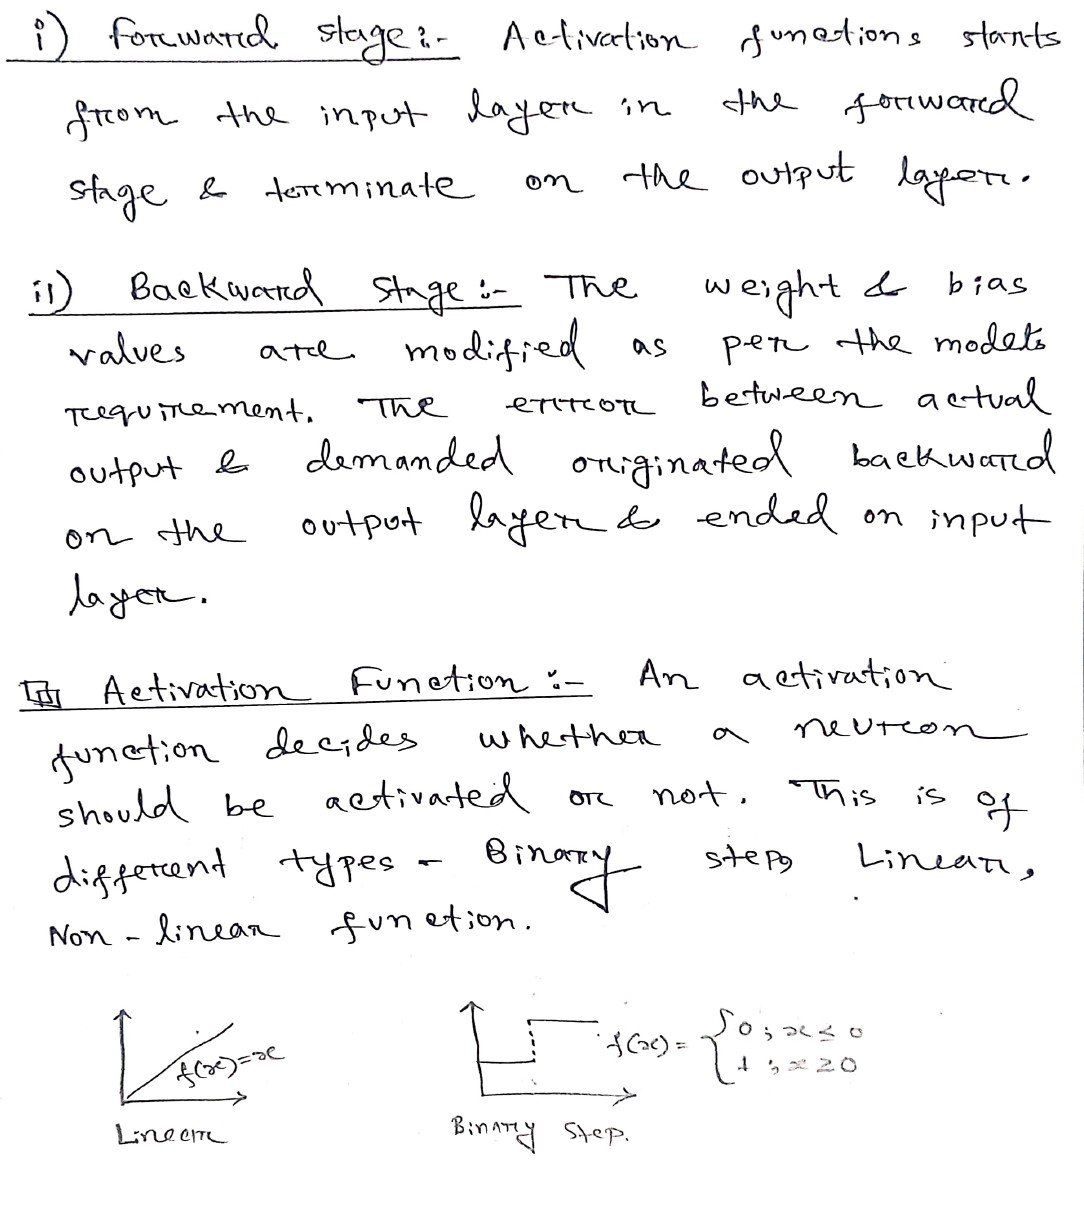 i) Forward stage :- Activation functions starts
from the input layer in the forward
stage & terminate on the output layer.
ii) Backward stage :- The weight & bias
values are modified as per the models
requirement. The error between actual
output & demanded originated backward
on the output layer & ended on input
layer.
Activation Function :- An activation
function decides whether a neuron
should be activated or not. This is of
different types - Binary step, Linear,
Non-linear function.
f(x)=x
Linear
f(x) = { 0 ; x ≤ 0
1 ; x ≥ 0
Binary Step.